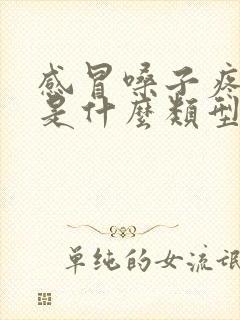 感冒嗓子疼
是什麼類型
單纯的女流氓